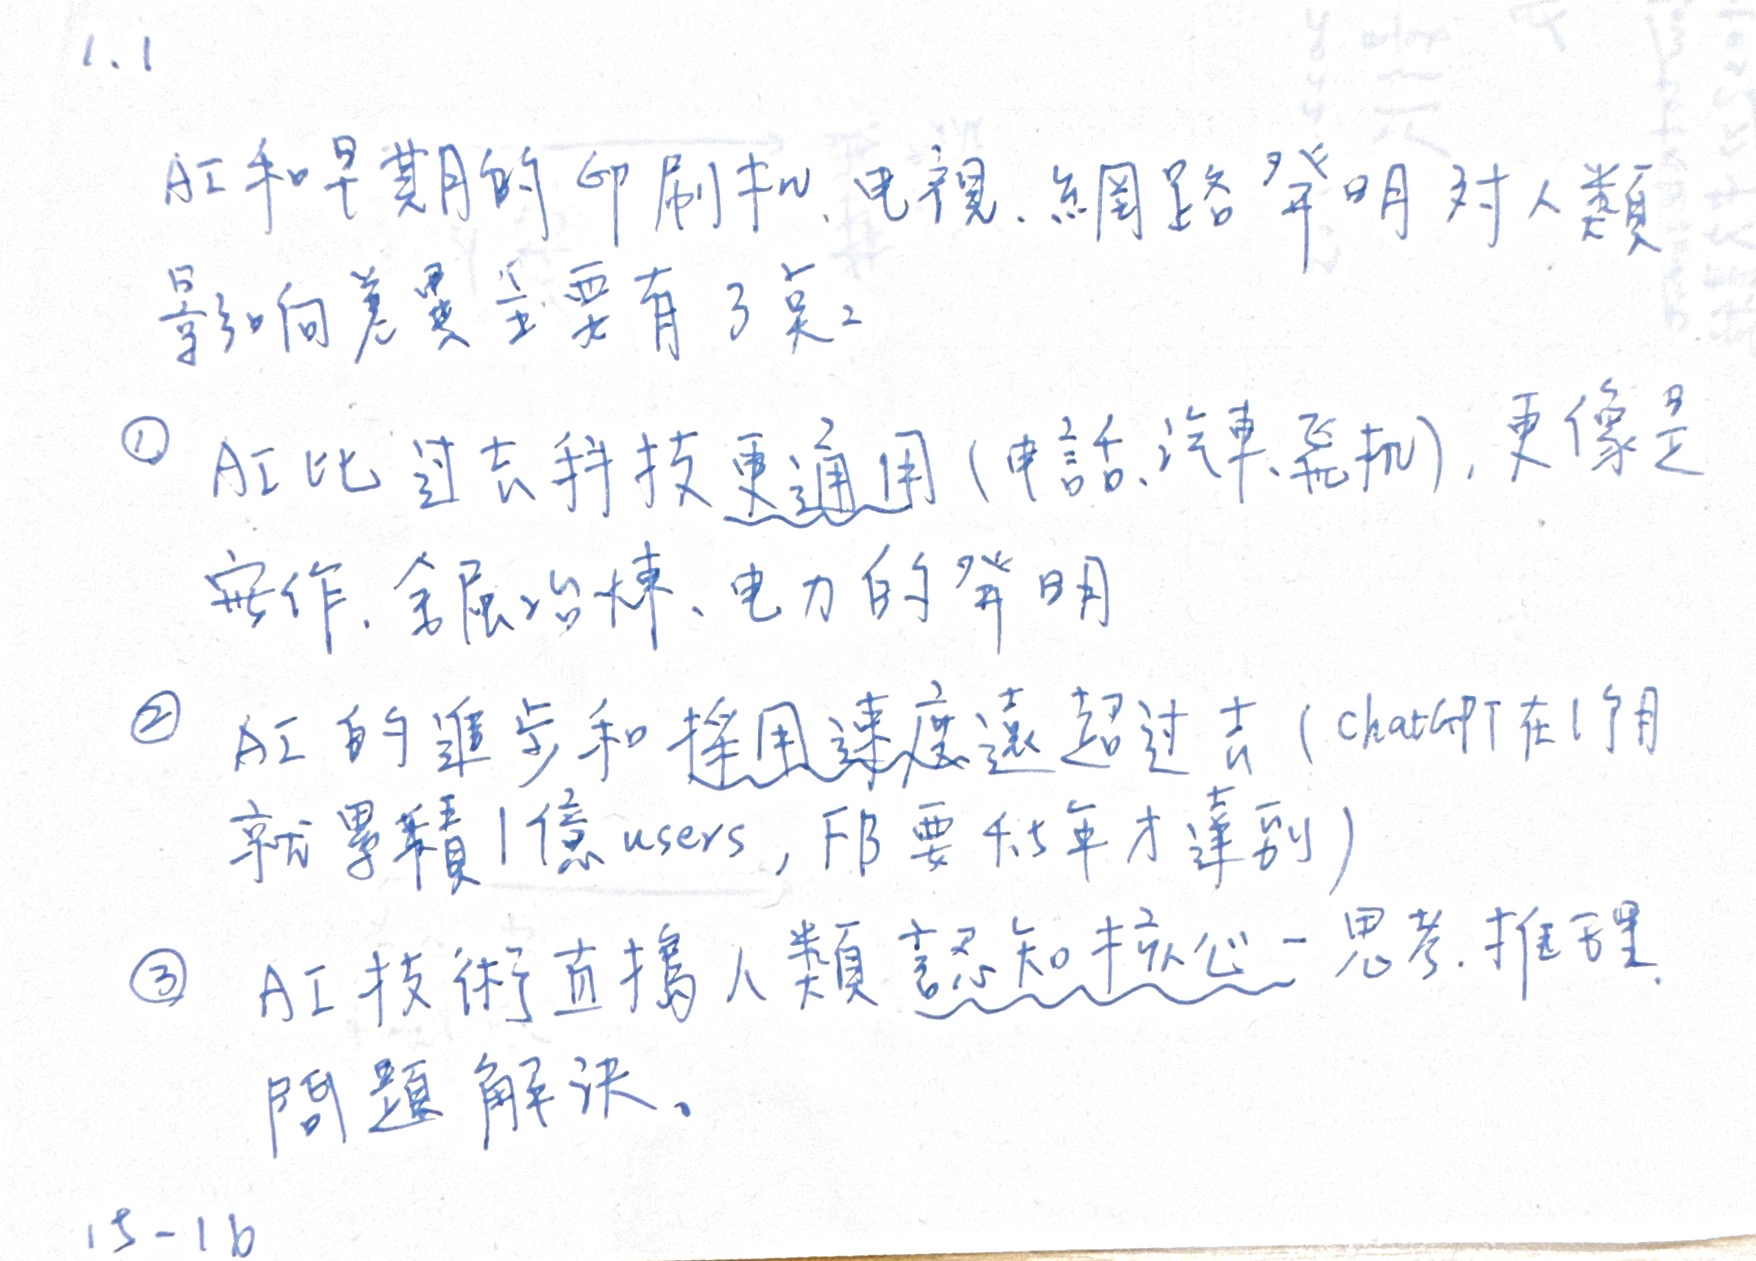 1.1
AI和早期的印刷机、电视、網路發明对人類
影响差異主要有3点:
① AI比过去科技更通用(电話、汽車、飛机),更像是
農作、金属冶煉、电力的發明
② AI的進步和採用速度遠超过去(ChatGPT在1个月
就累積1億users, FB要4.5年才達到)
③ AI技術直搗人類認知核心-思考、推理、
問題解決。
15-16